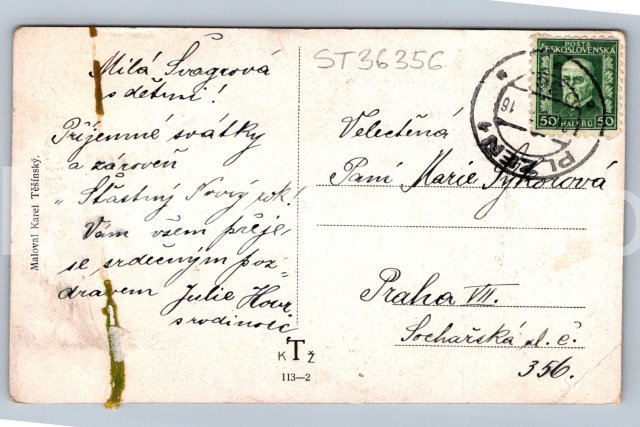 ST36356
Milá Švagrová
s dětmi!
Příjemné svátky
a zároveň
"Šťastný Nový rok!
Vám všem přeje
se srdečným poz-
dravem Julie
s rodinou
Maloval Karel Těšínský.
K T Ž
113—2
POŠTA
ČESKOSLOVENSKÁ
50 HALÉŘŮ 50
PLZEŇ 1
Velectěná
Paní Marie Sýkorová
Praha VII.
Sochařská ul. č.
356.